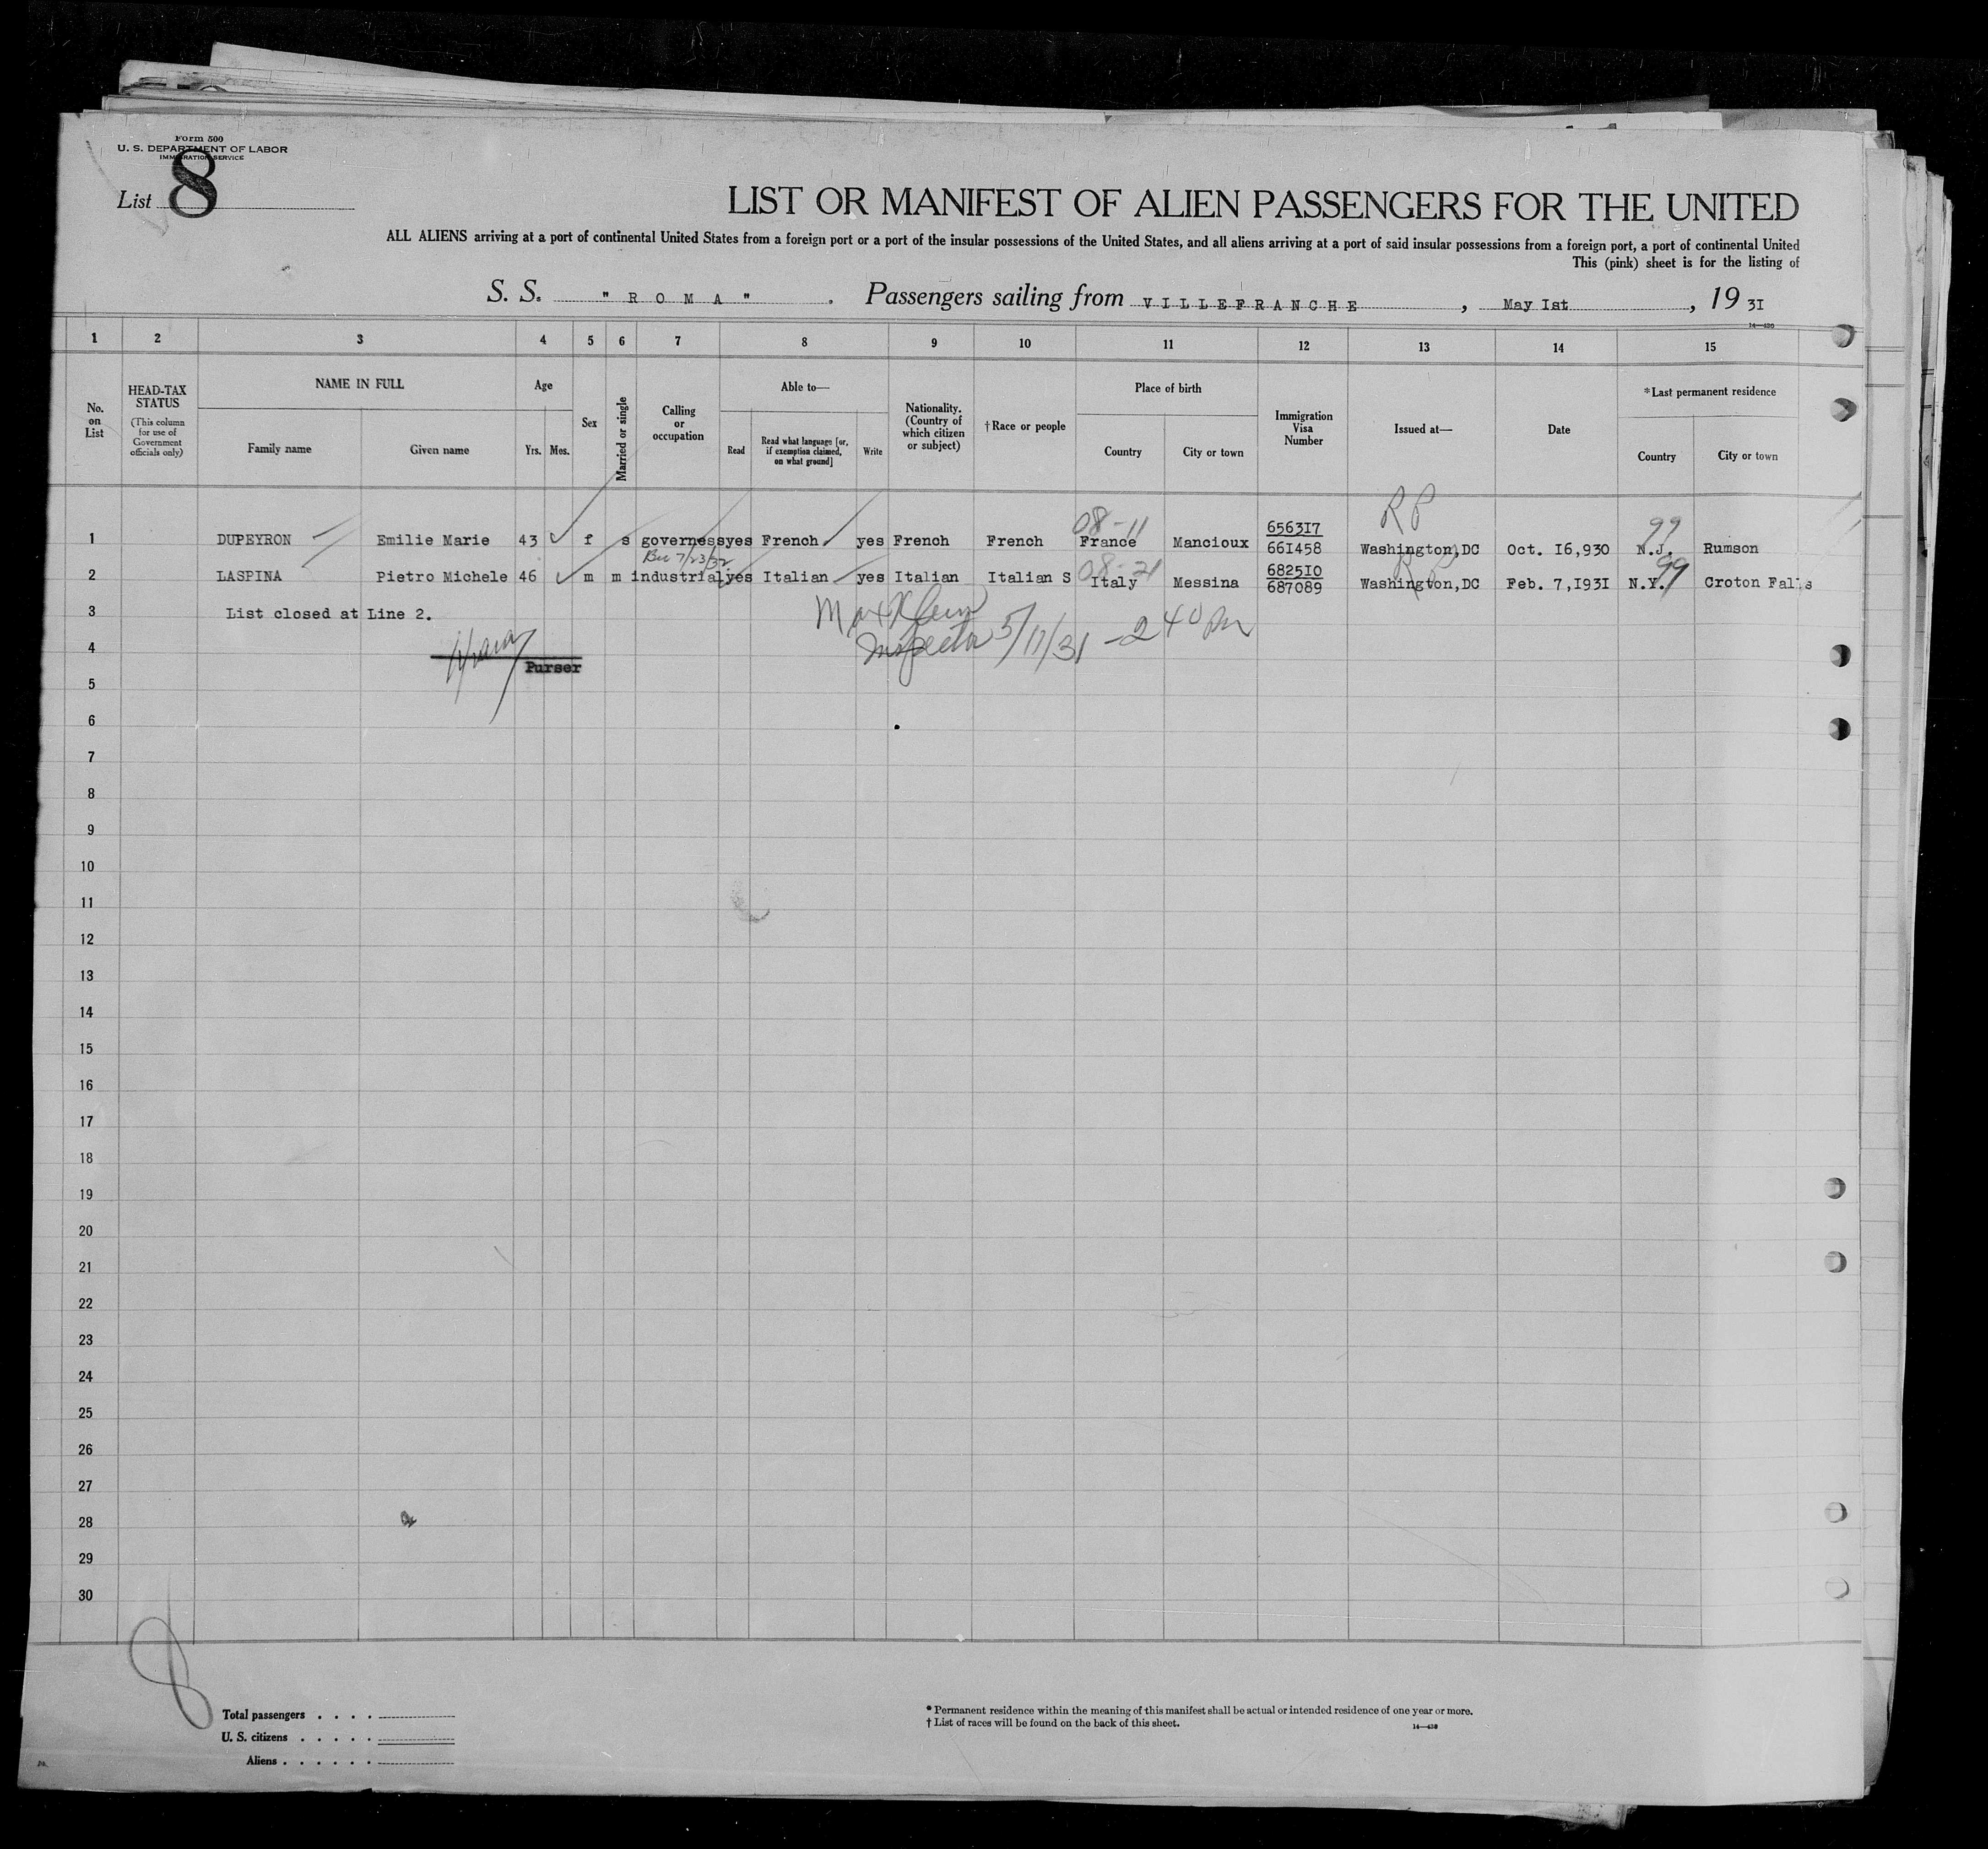 Form 500
U. S. DEPARTMENT OF LABOR
IMMIGRATION SERVICE
List 8
LIST OR MANIFEST OF ALIEN PASSENGERS FOR THE UNITED
ALL ALIENS arriving at a port of continental United States from a foreign port or a port of the insular possessions of the United States, and all aliens arriving at a port of said insular possessions from a foreign port, a port of continental United
This (pink) sheet is for the listing of
S. S. " R O M A " . Passengers sailing from VILLEFRANCHE , May Ist , 19 3I
14—430
1 2 3 4 5 6 7 8 9 10 11 12 13 14 15
No. on List
HEAD-TAX STATUS (This column for use of Government officials only)
NAME IN FULL Family name Given name
Age Yrs. Mos.
Sex
Married or single
Calling or occupation
Able to— Read Read what language [or, if exemption claimed, on what ground] Write
Nationality. (Country of which citizen or subject)
†Race or people
Place of birth Country City or town
Immigration Visa Number
Issued at—
Date
*Last permanent residence Country City or town
RP
08-11 99
1 DUPEYRON Emilie Marie 43 f s governess yes French yes French French France Mancioux 6563I7 66I458 Washington,DC Oct. I6,930 N.J. Rumson
7/23/32
08-21 RP 99
2 LASPINA Pietro Michele 46 m m industrial yes Italian yes Italian Italian S Italy Messina 6825IO 687089 Washington,DC Feb. 7,I93I N.Y. Croton Falls
3 List closed at Line 2. Max Klein
4 Inspector 5/11/31 - 2 40 pm
Purser
5
6
7
8
9
10
11
12
13
14
15
16
17
18
19
20
21
22
23
24
25
26
27
28
29
30
8
Total passengers . . . .
U. S. citizens . . . . .
Aliens . . . . . .
* Permanent residence within the meaning of this manifest shall be actual or intended residence of one year or more.
† List of races will be found on the back of this sheet.
14—430